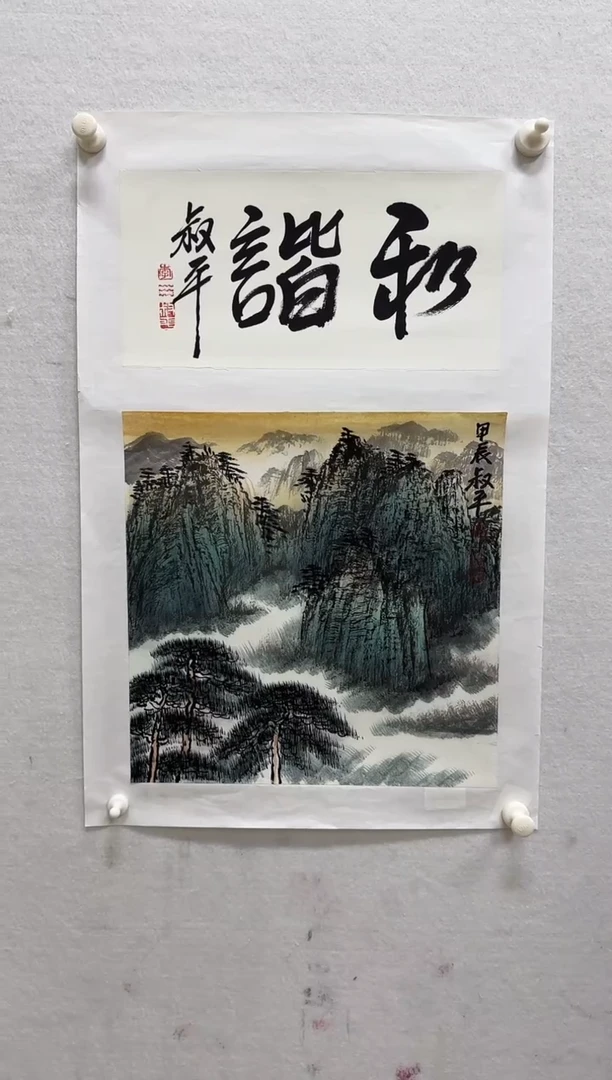 和諧
叔平
甲辰叔平